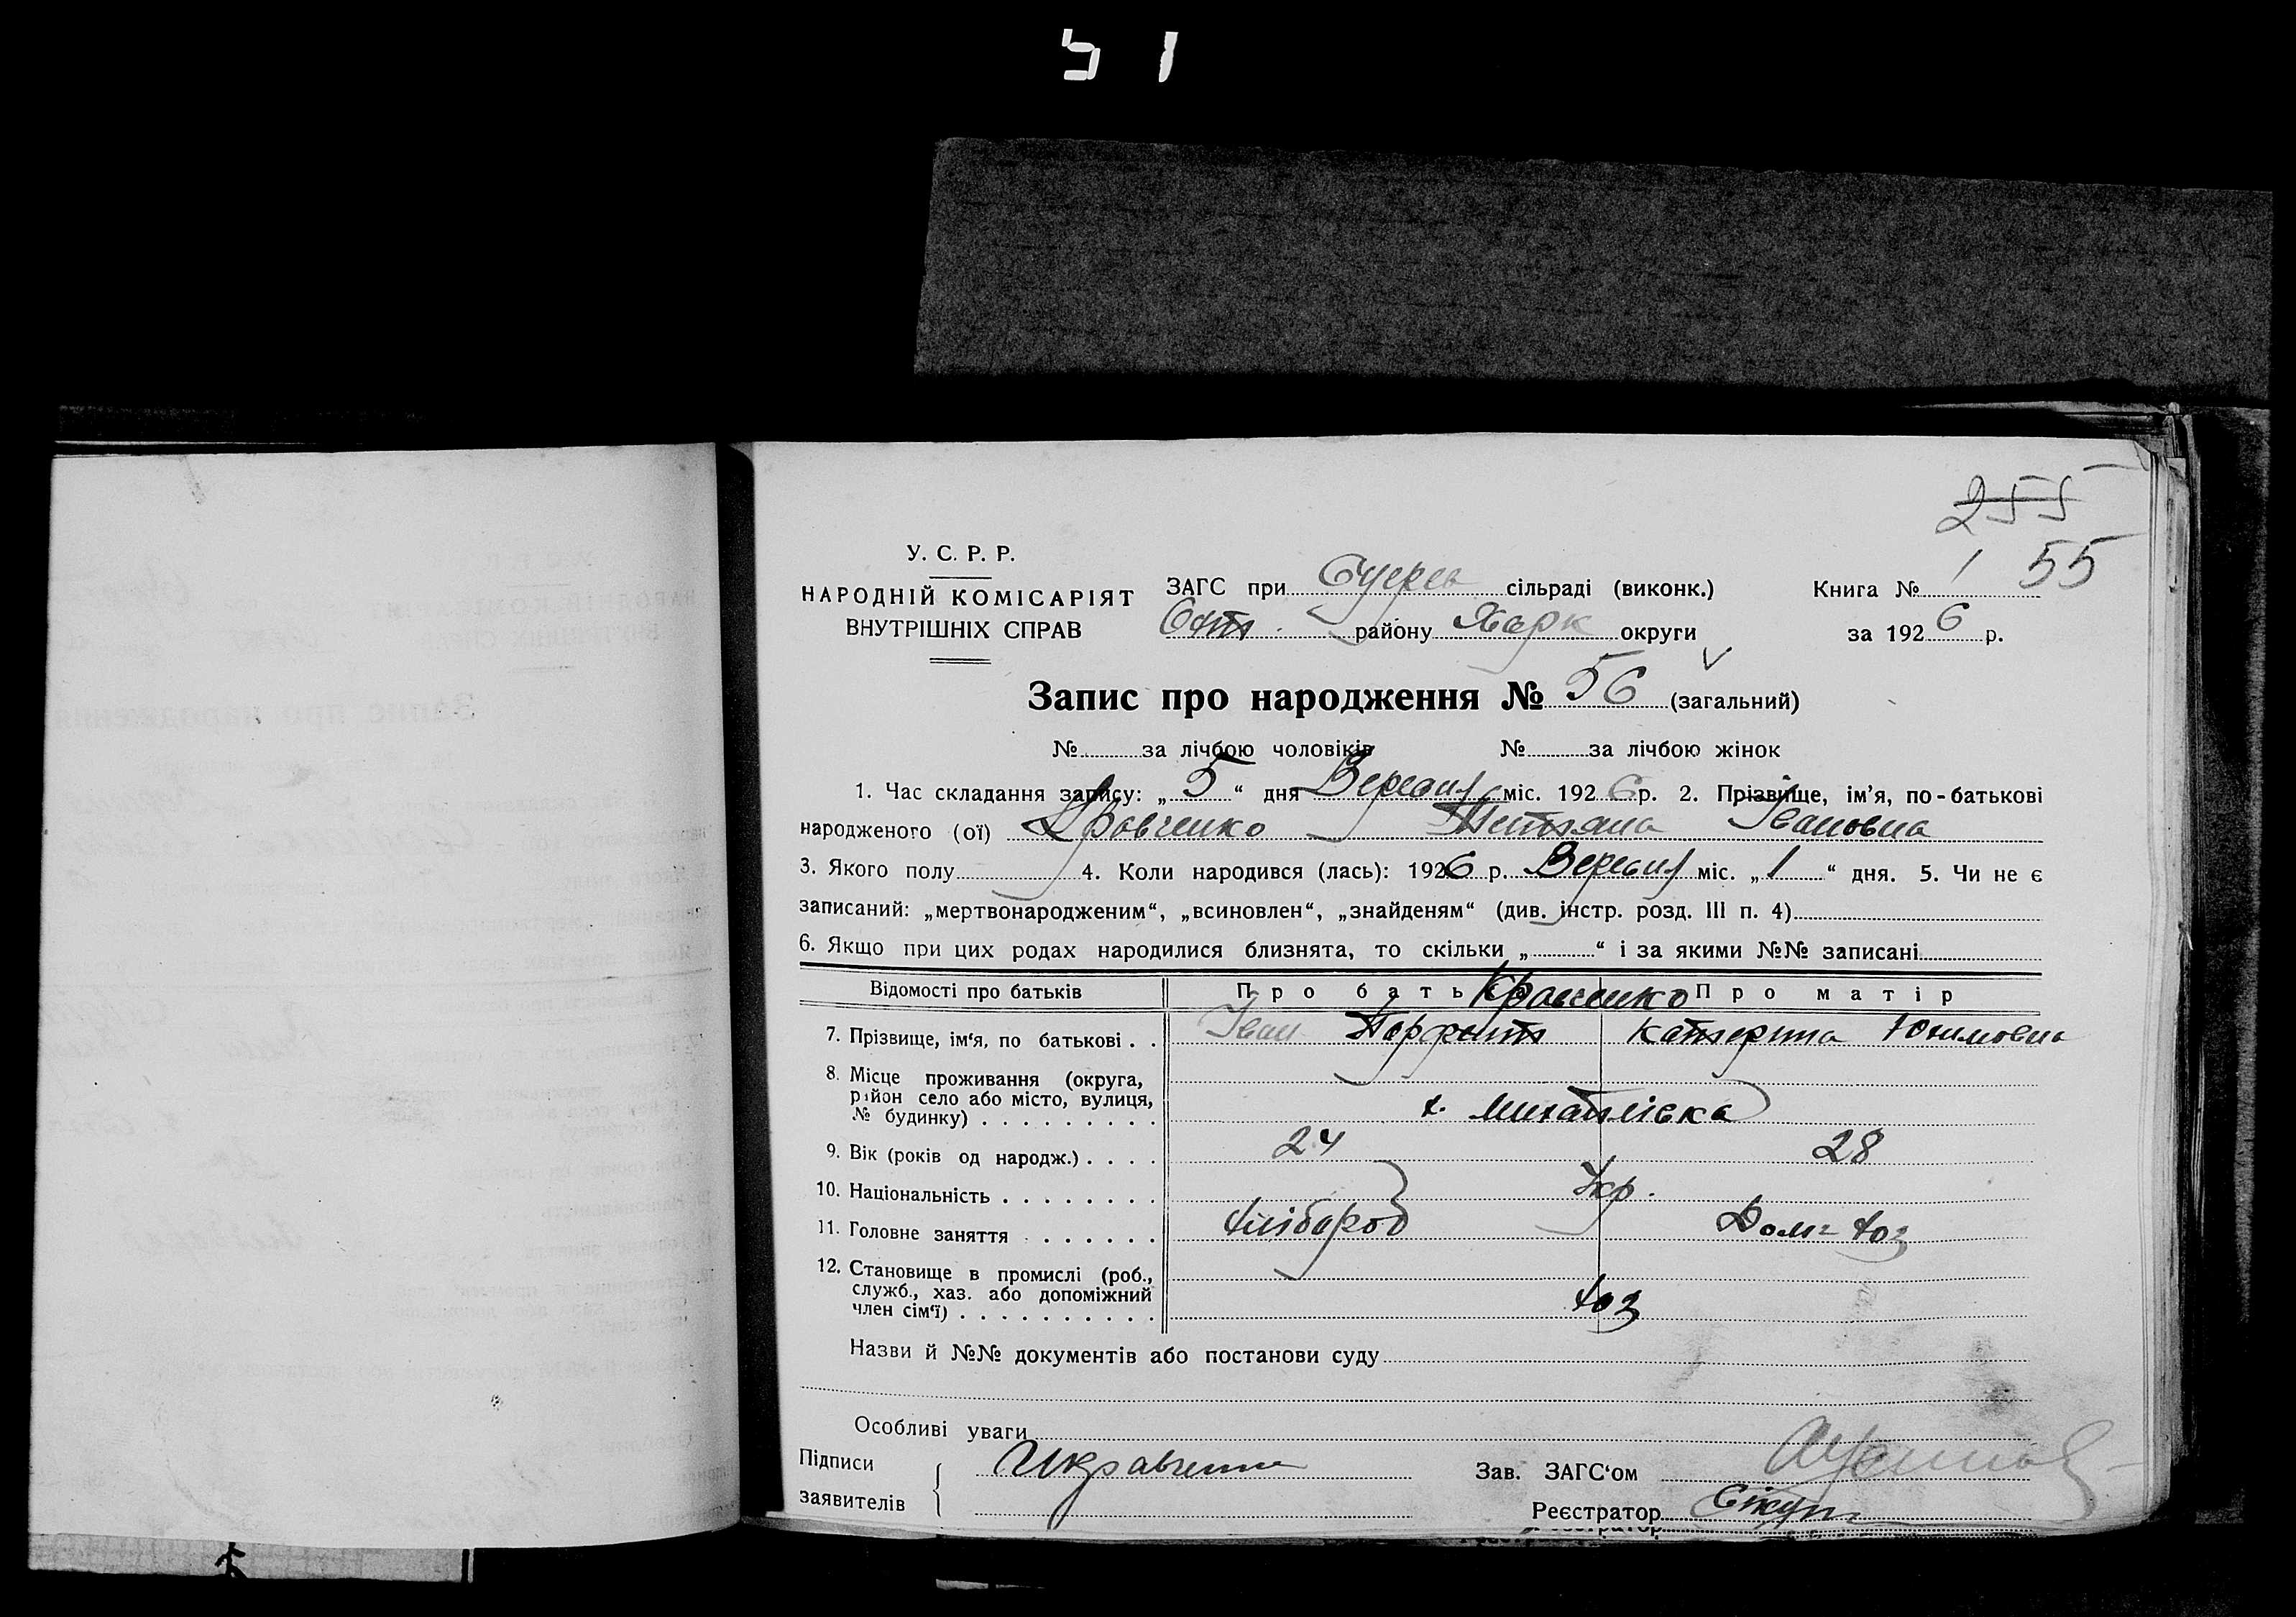 51
255
55
У. С. Р. Р.
НАРОДНІЙ КОМІСАРІЯТ
ВНУТРІШНІХ СПРАВ
ЗАГС при сільраді (виконк.)
району Харк округи
Книга № 1
за 1926 р.
Запис про народження № 56 (загальний)
№ за лічбою чоловіків № за лічбою жінок
1. Час складання запису: „5“ дня Вересня міс. 1926 р. 2. Прізвище, ім’я, по-батькові
народженого (ої) Кравченко Тетяна Івановна
3. Якого полу 4. Коли народився (лась): 1926 р. Вересня міс. „1“ дня. 5. Чи не є
записаний: „мертвонародженим“, „всиновлен“, „знайденям“ (див. інстр. розд. III п. 4)
6. Якщо при цих родах народилися близнята, то скільки „ “ і за якими №№ записані
Відомості про батьків Про бать Кравченко Про матір
7. Прізвище, ім‘я, по батькові Іван Катерина
8. Місце проживання (округа,
район село або місто, вулиця,
№ будинку) х. Михайлівка
9. Вік (років од народж.) 24 28
10. Національність Укр.
11. Головне заняття хлібороб Дом. хоз
12. Становище в промислі (роб.,
служб., хаз. або допоміжний
член сім‘ї) хоз
Назви й №№ документів або постанови суду
Особливі уваги
Підписи
заявителів
Икравченко
Зав. ЗАГС‘ом
Реєстратор